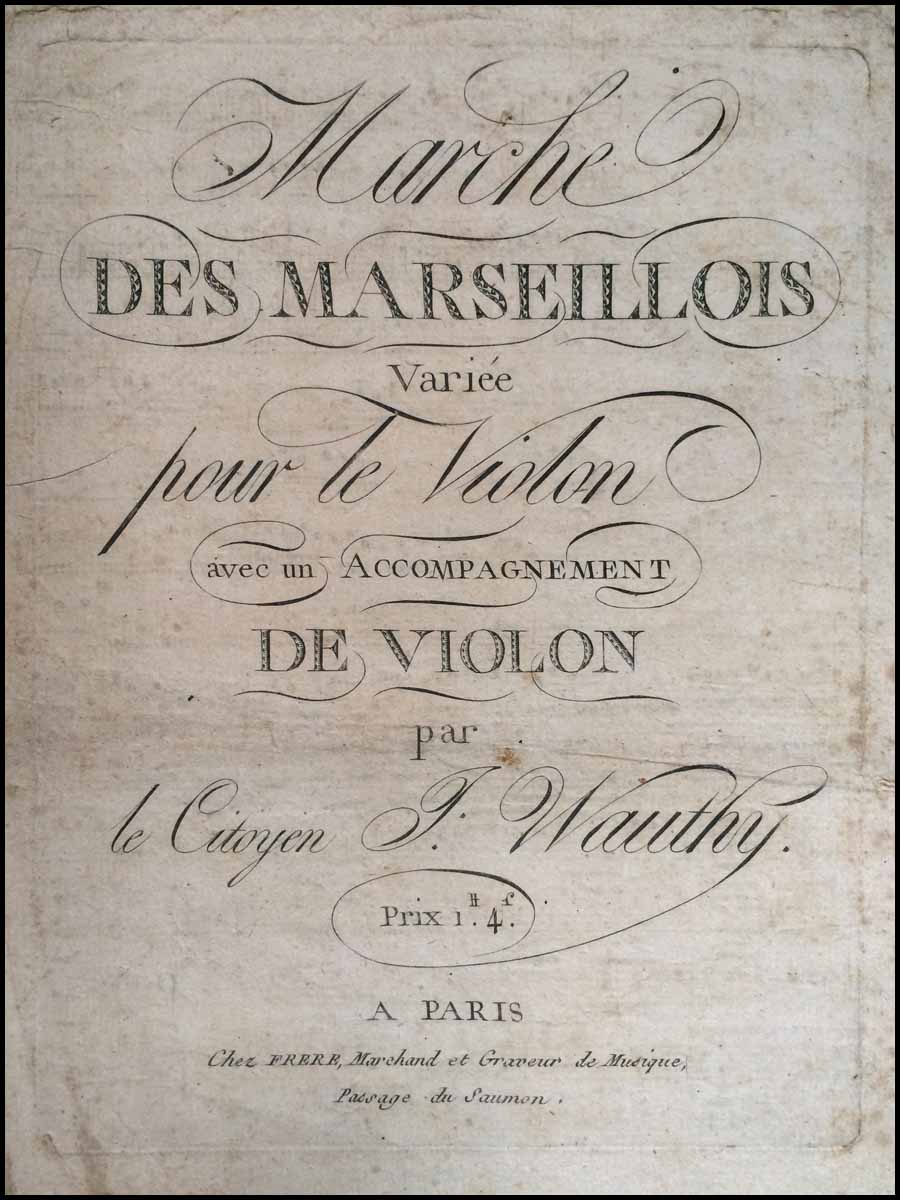 Marche
DES MARSEILLOIS
Variée
pour le Violon
avec un ACCOMPAGNEMENT
DE VIOLON
par
le Citoyen J. Wauthy.
Prix 1.ᵗᵗ 4.ˢ
A PARIS
Chez FRERE, Marchand et Graveur de Musique,
Passage du Saumon.